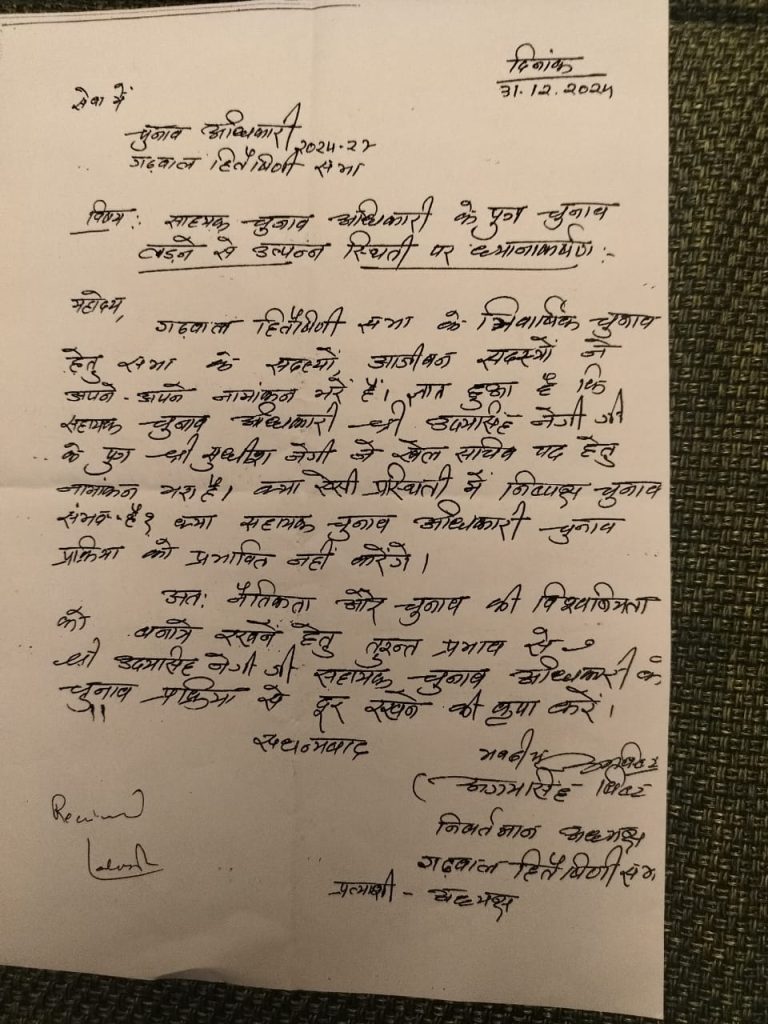 दिनांक
31.12.2024
सेवा में
चुनाव अधिकारी
2024-27
गढ़वाल हितैषिणी सभा
विषय: सहायक चुनाव अधिकारी के पुत्र चुनाव
लड़ने से उत्पन्न स्थिती पर ध्यानाकर्षण:-
महोदय,
गढ़वाल हितैषिणी सभा के त्रिवार्षिक चुनाव
हेतु सभा के सदस्यों, आजीवन सदस्यों ने
अपने-अपने नामांकन भरें हैं। ज्ञात हुआ है कि
सहायक चुनाव अधिकारी श्री उदयसिंह नेगी जी
के पुत्र श्री सुधीश नेगी ने खेल सचिव पद हेतु
नामांकन भरा है। क्या ऐसी प्रस्थिती में निष्पक्ष चुनाव
संभव है? क्या सहायक चुनाव अधिकारी चुनाव
प्रक्रिया को प्रभावित नहीं करेंगे।
अत: नैतिकता और चुनाव की विश्वषनियता
को बनाये रखनें हेतु तुरन्त प्रभाव से
श्री उदयसिंह नेगी जी सहायक चुनाव अधिकारी के
चुनाव प्रक्रिया से दूर रखने की कृपा करें।
सधन्यवाद
भवदीय
निवर्तमान अध्यक्ष
गढ़वाल हितैषिणी सभा
प्रत्याशी - अध्यक्ष
Received